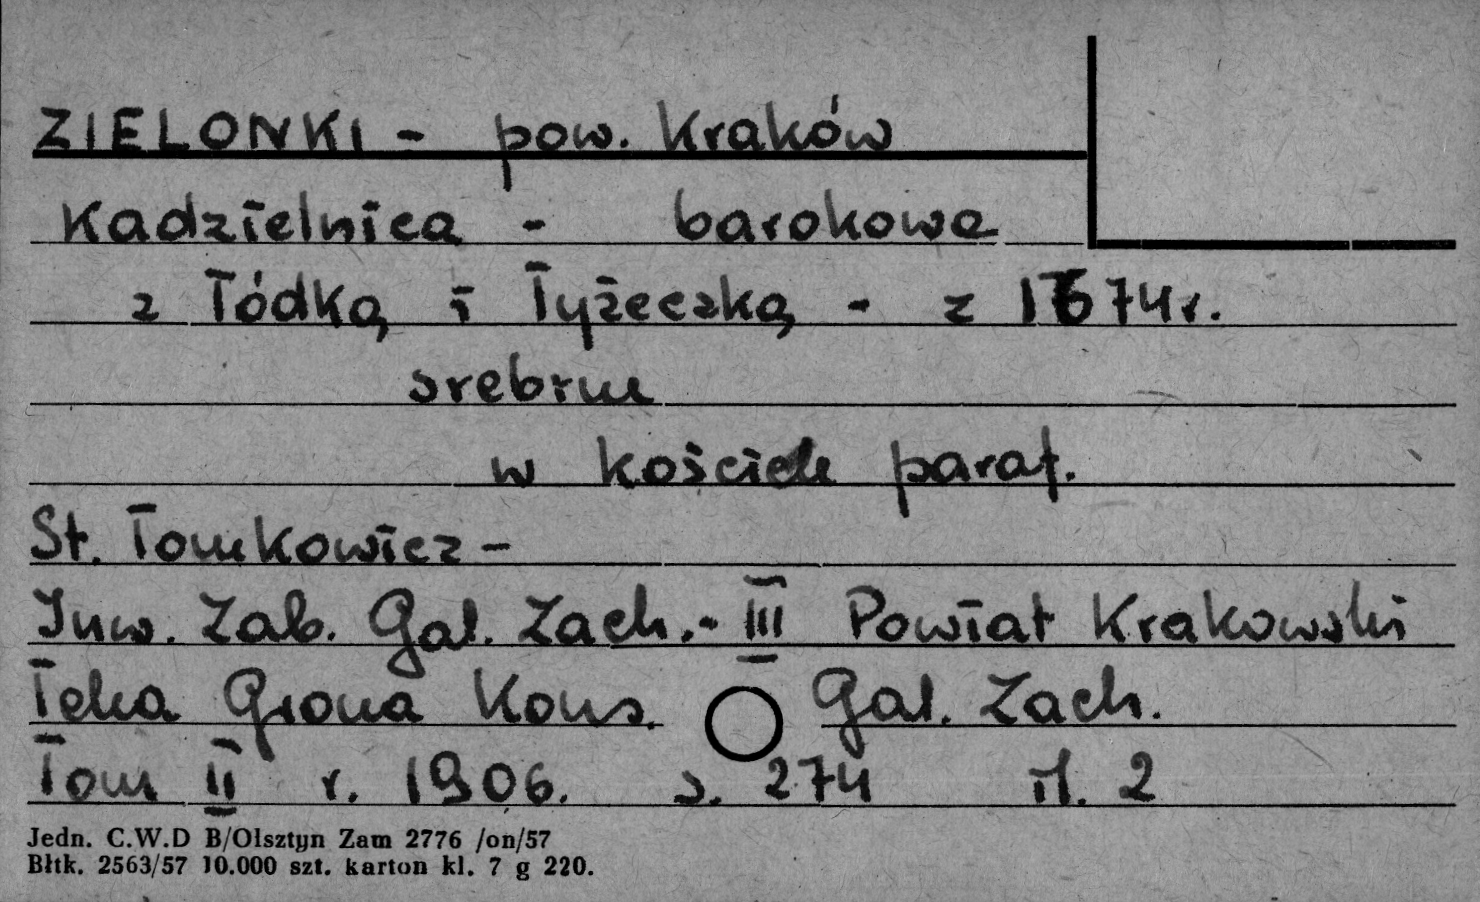 ZIELONKI - pow. Kraków
Kadzielnica - barokowa
z łódką i łyżeczką - z 1674r.
srebrne
w kościele paraf.
St. Tomkowicz -
Inw. Zab. Gal. Zach. - III Powiat Krakowski
Teka Grona Kons. Gal. Zach.
Tom II r. 1906. s. 274 il. 2
Jedn. C.W.D B/Olsztyn Zam 2776 /on/57
Błtk. 2563/57 10.000 szt. karton kl. 7 g 220.